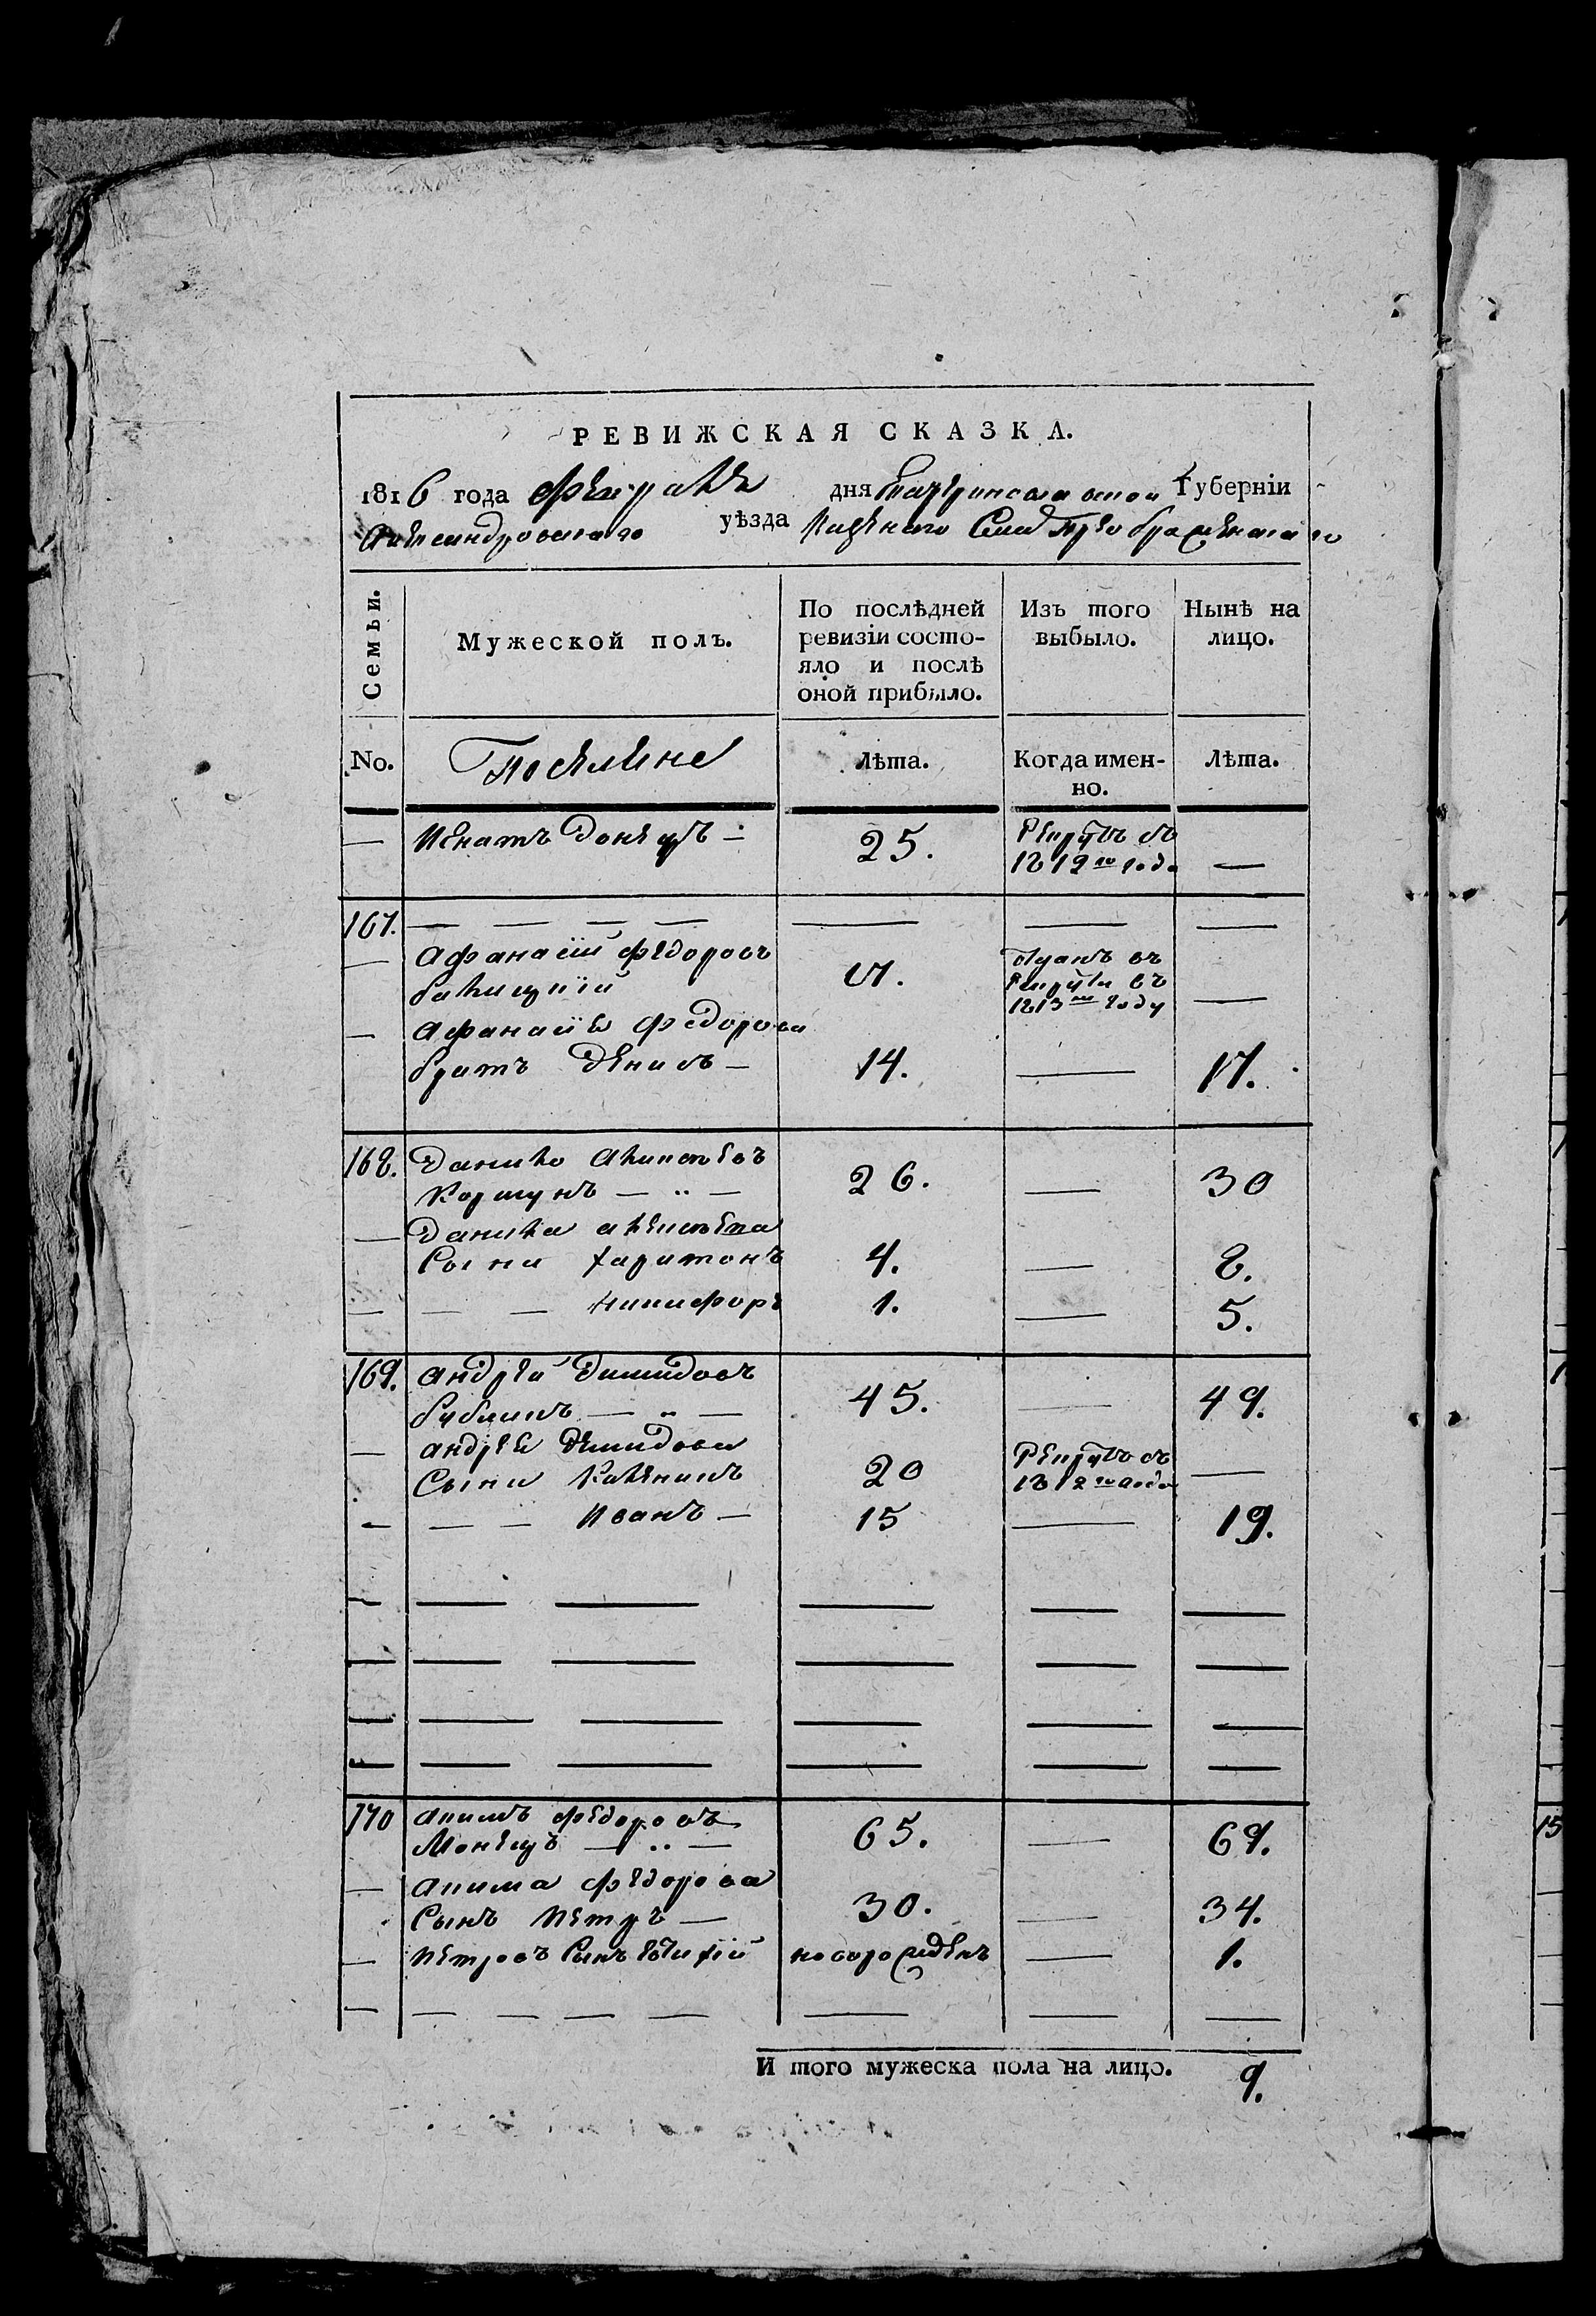 РЕВИЖСКАЯ СКАЗКА.
1816 года февраля дня Екатеринославской Губерніи
Александровского уѣзда Казенного Села Преображенского
Семьи. Мужеской полъ. По послѣдней ревизіи состояло и послѣ оной прибыло. Изъ того выбыло. Нынѣ на лицо.
No. Поселяне лѣта. Когда именно. лѣта.
— Игнатъ Донецъ — 25. Рекрутъ съ
1812го года —
167. — — — — — — —
— Афанасій Федоровъ
17. отданъ въ
рекруты въ
1813м году —
— Афанасія Федорова
братъ Денисъ — 14. — 17.
168. Данило Алистовъ
Коршунъ — „ — 26. — 30
— Данила
Сыни Харитонъ 4. — 8.
— — — Никифоръ 1. — 5.
169. Андрей Димидовъ
— „ — 45. — 49.
— Андрея Демидова
Сыни Каленикъ 20 Рекрутъ съ
1812го года —
— — — Иванъ — 15 — 19.
— — — — — —
— — — — — —
— — — — — —
— — — — — —
170 Акимъ Федоровъ
— „ — 65. — 69.
— Акима Федорова
Сынъ Петръ — 30. — 34.
— Петровъ Сынъ Евтихій новорожденъ — 1.
— — — — — — — —
И того мужеска пола на лицо. 9.
15